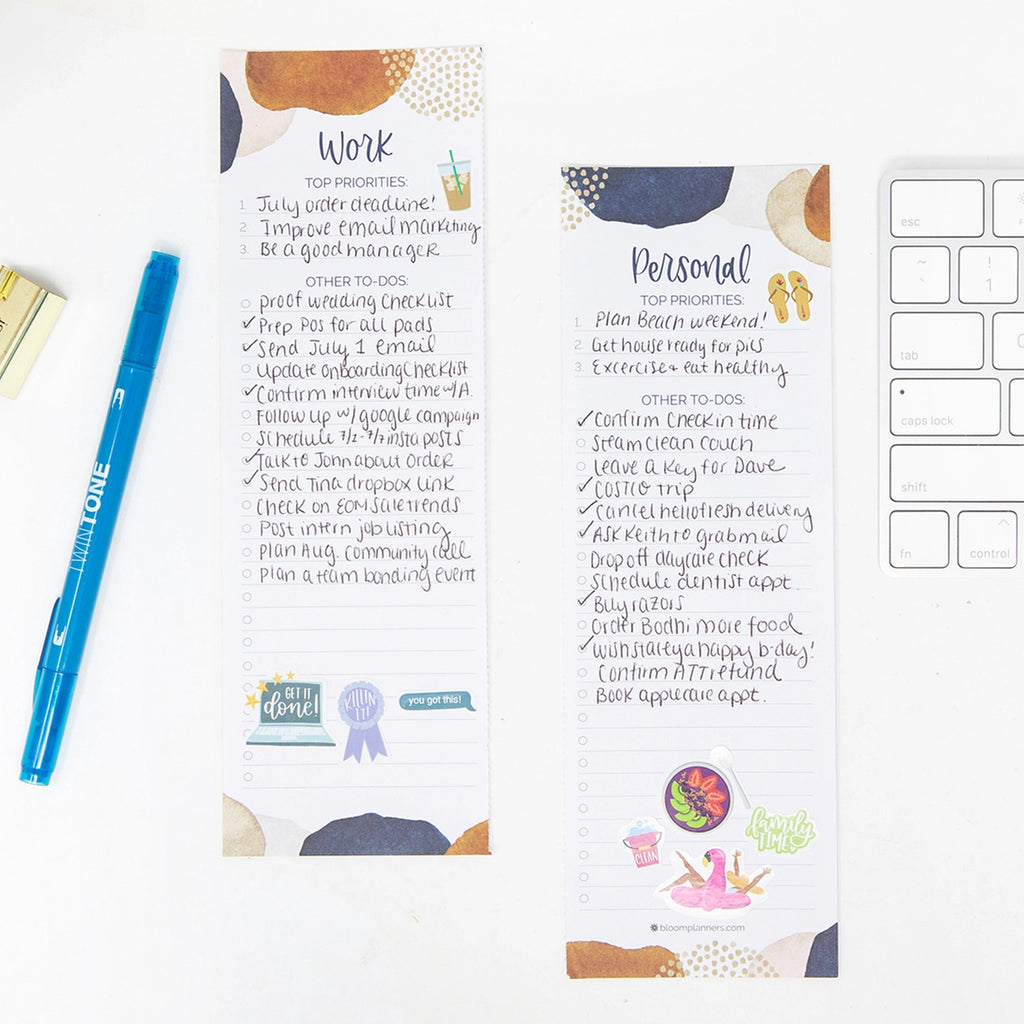 Work
TOP PRIORITIES:
1. July order deadline!
2. Improve email marketing
3. Be a good manager
OTHER TO-DOS:
proof wedding checklist
Prep POs for all pads
Send July 1 email
Update onboarding checklist
Confirm interview time w/A.
Follow up w/ google campaign
Schedule 7/1-7/7 insta posts
Talk to John about order
Send Tina dropbox link
Check on EOM sale trends
Post intern job listing
Plan Aug. community call
Plan a team bonding event
GET IT
done!
KILLIN'
IT!
you got this!
Personal
TOP PRIORITIES:
1. Plan Beach weekend!
2. Get house ready for pics
3. Excercise + eat healthy
OTHER TO-DOS:
Confirm Check in time
Steam clean couch
Leave a key for Dave
COSTCO trip
Cancel hellofresh delivery
ASK Keith to grab mail
Drop off daycare check
Schedule dentist appt.
Buy razors
Order Bodhi more food
Wish stacey a happy b-day!
Confirm ATT refund
Book applecare appt.
CLEAN
family
TIME
bloomplanners.com
TWINTONE
esc
~
`
!
1
tab
caps lock
shift
fn
control